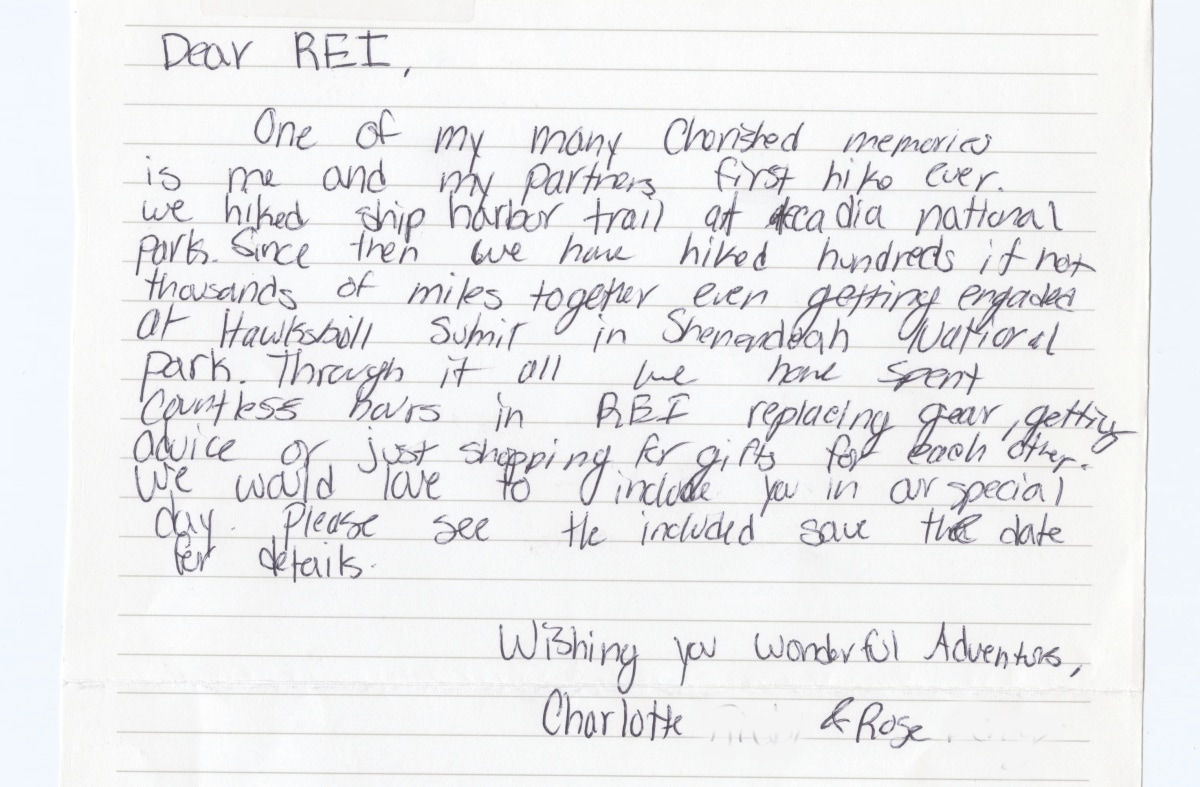 Dear REI,
One of my many Cherished memories
is me and my partners first hike ever.
we hiked ship harbor trail at Acadia national
park. Since then we have hiked hundreds if not
thousands of miles together even getting engaded
at Hawksbill Sumit in Shenendoah National
park. Through it all we have spent
countless hours in REI replacing gear, getting
advice or just shopping for gifts for each other.
We would love to include you in our special
day. Please see the included save the date
for details.
Wishing you wonderful Adventures,
Charlotte & Rose